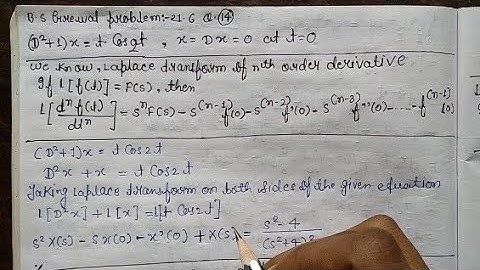 B.S Grewal problem:-21.6 Q.(14)
(D²+1)x = t·Cos2t , x = Dx = 0 at t=0
We know, Laplace transform of nth order derivative
If L[f(t)] = F(s), then
L[dⁿf(t)/dtⁿ] = sⁿF(s) - s^(n-1) f(0) - s^(n-2) f'(0) - s^(n-3) f''(0) - ---- - f^(n-1)(0)
(D²+1)x = t Cos2t
D²x + x = t Cos2t
Taking Laplace transform on both sides of the given equation
L[D²x] + L[x] = L[t Cos2t]
s² X(s) - s x(0) - x'(0) + X(s) = s²-4/(s²+4)²